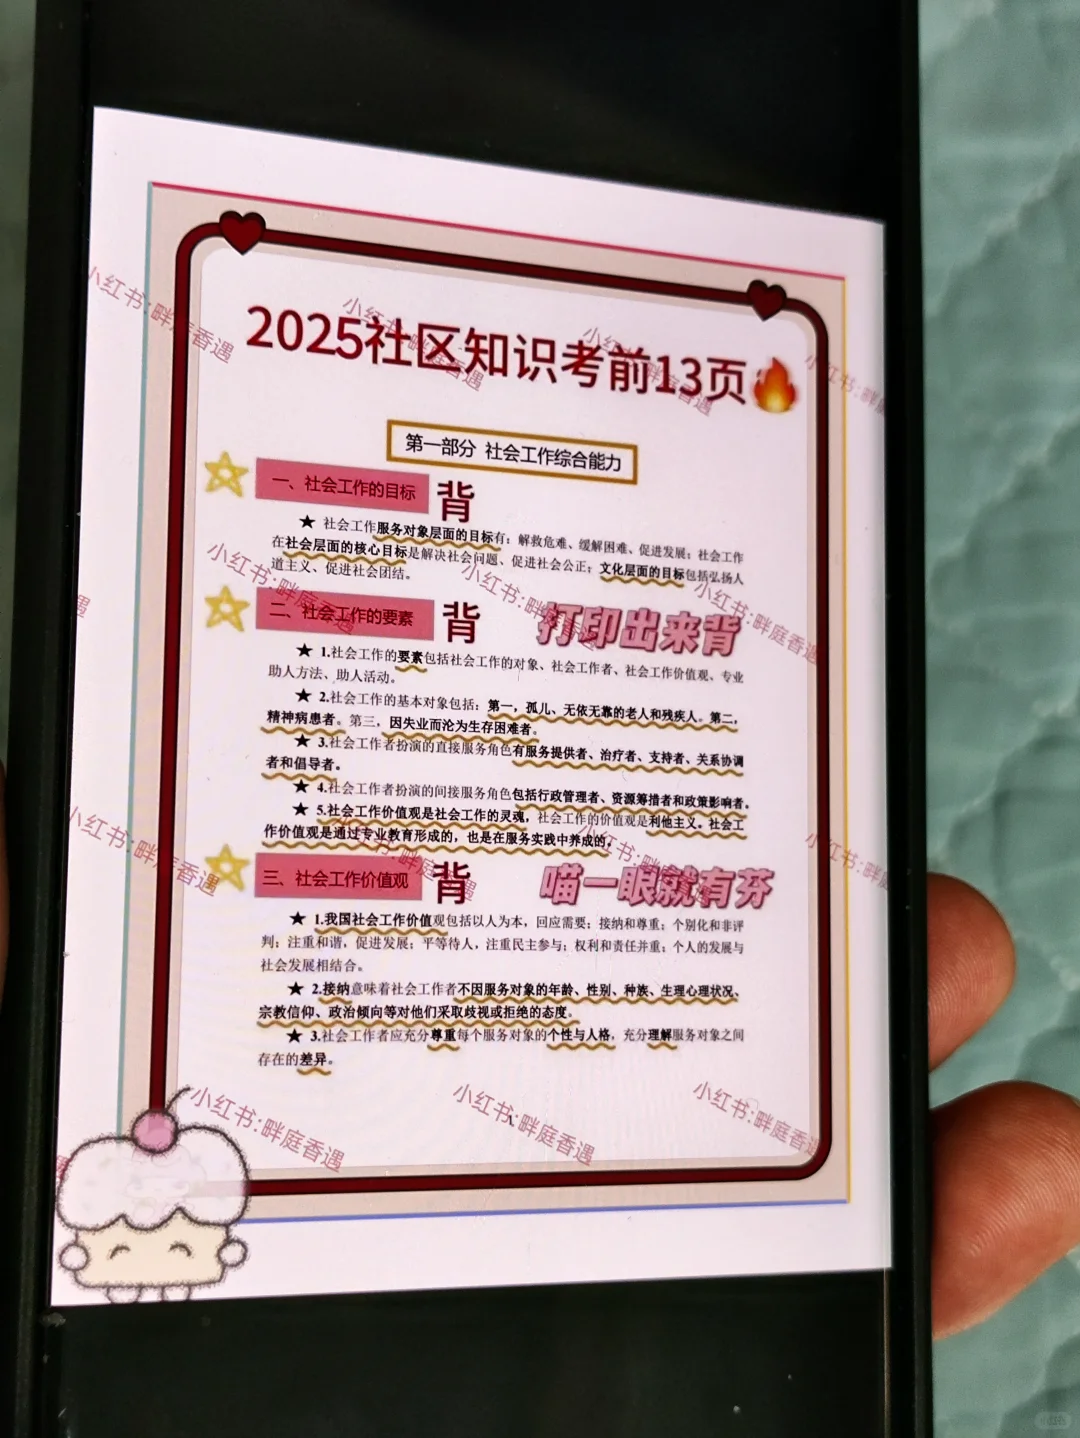 2025社区知识考前13页
第一部分 社会工作综合能力
一、社会工作的目标 背
★ 社会工作服务对象层面的目标有：解救危难、缓解困难、促进发展；社会工作
在社会层面的核心目标是解决社会问题、促进社会公正；文化层面的目标包括弘扬人
道主义、促进社会团结。
二、社会工作的要素 背 打印出来背
★ 1.社会工作的要素包括社会工作的对象、社会工作者、社会工作价值观、专业
助人方法、助人活动。
★ 2.社会工作的基本对象包括：第一，孤儿、无依无靠的老人和残疾人。第二，
精神病患者。第三，因失业而沦为生存困难者。
★ 3.社会工作者扮演的直接服务角色有服务提供者、治疗者、支持者、关系协调
者和倡导者。
★ 4.社会工作者扮演的间接服务角色包括行政管理者、资源筹措者和政策影响者。
★ 5.社会工作价值观是社会工作的灵魂，社会工作的价值观是利他主义。社会工
作价值观是通过专业教育形成的，也是在服务实践中养成的。
三、社会工作价值观 背 喵一眼就有芬
★ 1.我国社会工作价值观包括以人为本，回应需要；接纳和尊重；个别化和非评
判；注重和谐，促进发展；平等待人，注重民主参与；权利和责任并重；个人的发展与
社会发展相结合。
★ 2.接纳意味着社会工作者不因服务对象的年龄、性别、种族、生理心理状况、
宗教信仰、政治倾向等对他们采取歧视或拒绝的态度。
★ 3.社会工作者应充分尊重每个服务对象的个性与人格，充分理解服务对象之间
存在的差异。
小红书:畔庭香遇
小红书:畔庭香遇
小红书:畔庭香遇